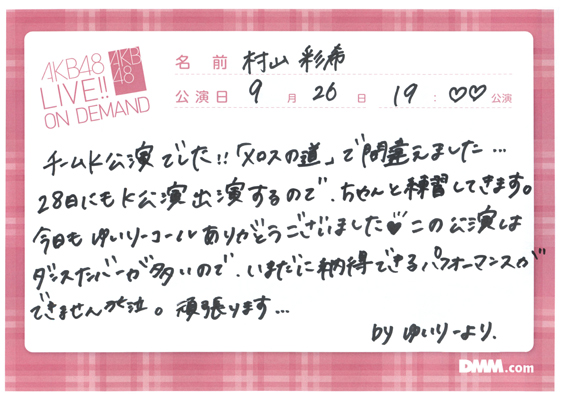 AKB48
LIVE!!
ON DEMAND
AKB
48
名 前 村山 彩希
公演日 9 月 26 日 19 : ♡♡ 公演
チームK公演でした!!「メロスの道」で間違えました…
28日にもK公演出演するので、ちゃんと練習してきます。
今日もゆいりーコールありがとうございました♥この公演は
ダンスナンバーが多いので、いまだに納得できるパフォーマンスが
できませんが泣。頑張ります…
by ゆいりーより.
DMM.com